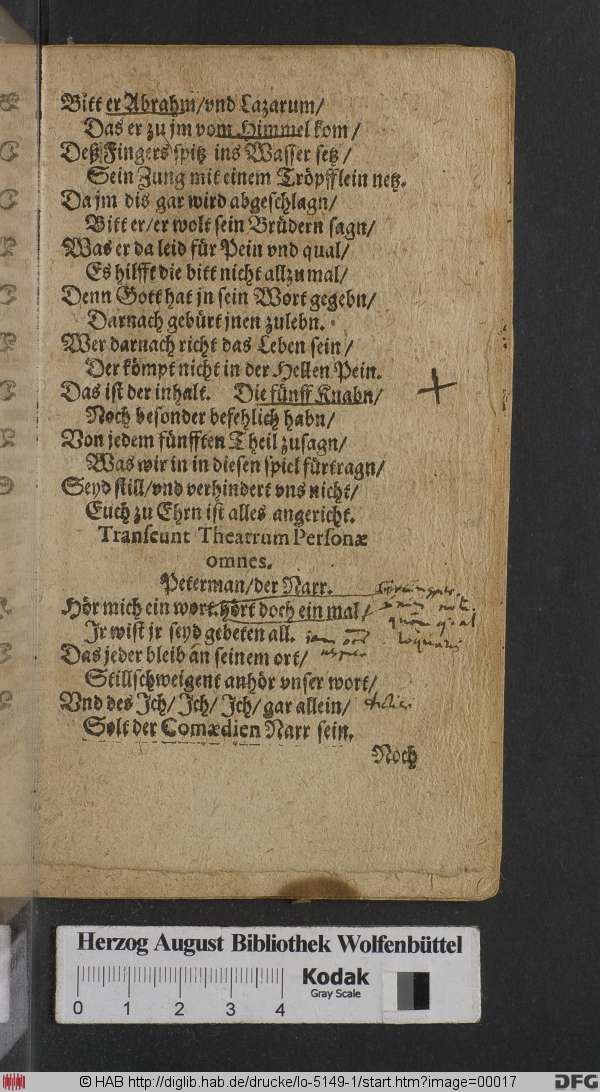 Bitt er Abrahm/vnd Lazarum/
Das er zu jm vom Himmel kom/
Deß Fingers spitz ins Wasser setz/
Sein Zung mit einem Tröpfflein netz.
Da jm dis gar wird abgeschlagn/
Bitt er/er wolt sein Brüdern sagn/
Was er da leid für Pein vnd qual/
Es hilfft die bitt nicht allzumal/
Denn Gott hat jn sein Wort gegebn/
Darnach gebürt jnen zulebn.
Wer darnach richt das Leben sein/
Der kömpt nicht in der Hellen Pein.
Das ist der inhalt. Die fünff Knabn/
Noch besonder befehlich habn/
Von jedem fünfften Theil zusagn/
Was wir in in diesen spiel fürtragn/
Seyd still/vnd verhindert vns nicht/
Euch zu Ehrn ist alles angericht.
Transeunt Theatrum Personæ
omnes.
Peterman/der Narr.
Hör mich ein wort.hört doch ein mal/
Jr wist jr seyd gebeten all.
Das jeder bleib an seinem ort/
Stillschweigent anhör vnser wort/
Vnd des Jch/Jch/Jch/gar allein/
Solt der Comædien Narr sein.
Noch
Herzog August Bibliothek Wolfenbüttel
Kodak
Gray Scale
0 1 2 3 4
© HAB http://diglib.hab.de/drucke/lo-5149-1/start.htm?image=00017
DFG